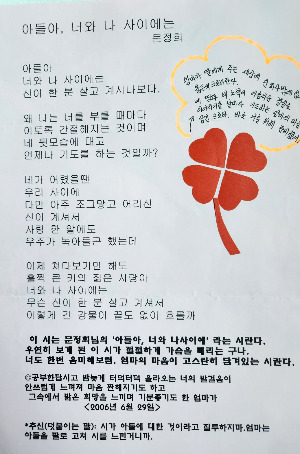 아들아, 너와 나 사이에는
문정희
아들아
너와 나 사이에는
신이 한 분 살고 계시나보다.
왜 나는 너를 부를 때마다
이토록 간절해지는 것이며
네 뒷모습에 대고
언제나 기도를 하는 것일까?
네가 어렸을땐
우리 사이에
다만 아주 조그맣고 어리신
신이 계셔서
사랑 한 알에도
우주가 녹아들곤 했는데
이제 쳐다보기만 해도
훌쩍 큰 키의 젊은 사랑아
너와 나 사이에는
무슨 신이 한 분 살고 계셔서
이렇게 긴 강물이 끝도 없이 흐를까
이 시는 문정희님의 '아들아, 너와 나사이에' 라는 시란다.
우연히 보게 된 이 시가 절절하게 가슴을 때리는 구나.
너도 한번 음미해보렴. 엄마의 마음이 고스란히 담겨있는 시란다.
공부한답시고 밤늦게 터덕터덕 올라오는 너의 발걸음이
안쓰럽게 느껴져 마음 짠해지기도 하고
그속에서 밝은 희망을 느끼며 기분좋기도 한 엄마가
<2006년 6월 29일>
*추신(덧붙이는 말): 시가 아들에 대한 것이라고 질투하지마.엄마는
아들을 딸로 고쳐 시를 느낀거니까.